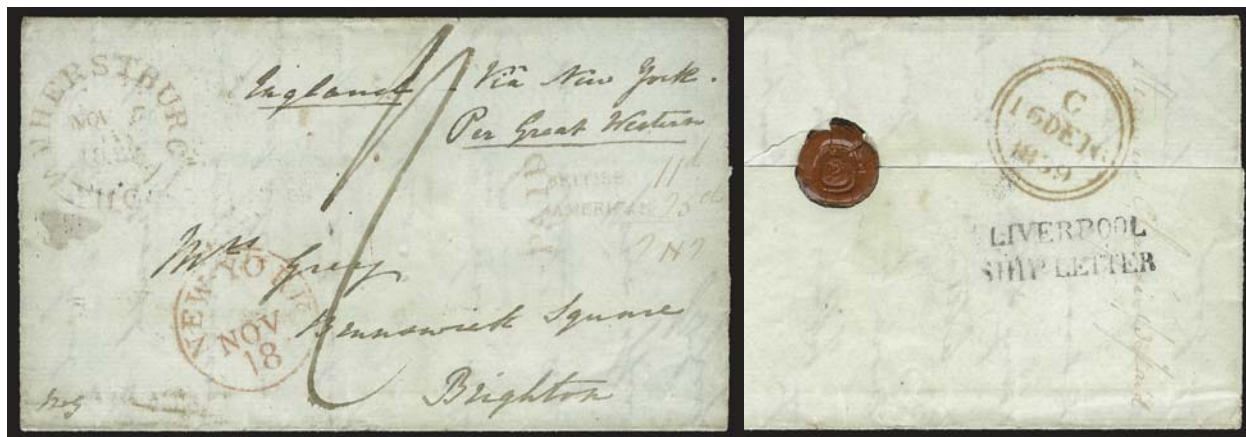 AMHERSTBURG
NOV
England Via New York.
Per Great Western
PAID
BRITISH
AMERICAN
11d
25 cts
Mrs Grey
NEW YORK
NOV
18
Brunswick Square
Brighton
C
16 DE 16
1839
LIVERPOOL
SHIP LETTER